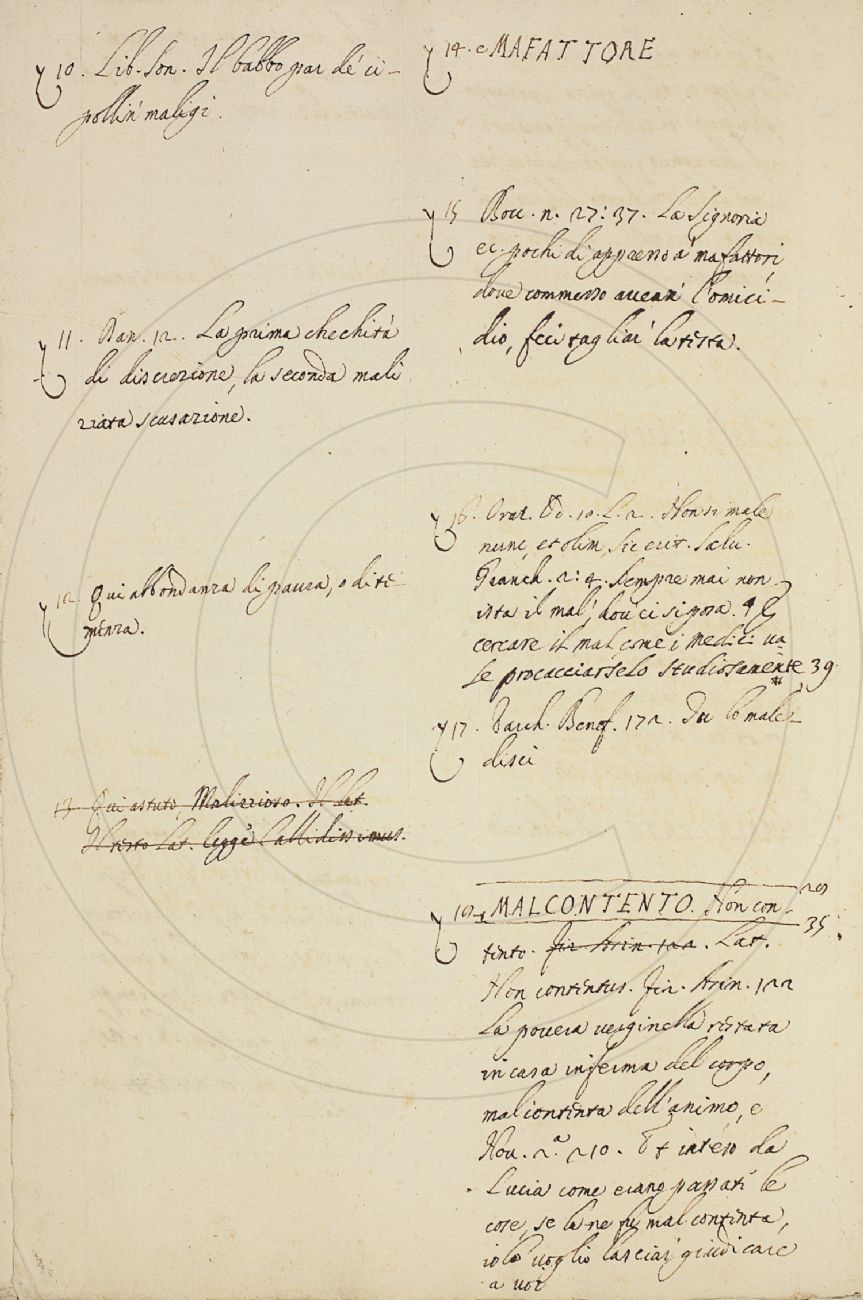 10. Lib. Son. Il babbo par de' ci-
pollin' maligi.
11. Dan. 12. La prima chechità
di discrezione, la seconda mali
ziata scusazione.
12. Qui abbondanza di paura, o di te-
menza.
13 Qui astuto, Malizzioso. Il lat.
Il testo Lat. legge Callidissimus.
14. c MAFATTORE
15 Bocc. n. 27: 37. La Signoria
ec. pochi dì appresso a' mafattori,
dove commesso avean' l'omici-
dio, feci tagliar la testa.
16. Orat. Od. 10. L. 2. Non si male
nunc, et olim, sic erit. Salu.
Granch. 2: 4. Sempre mai non
ista il mal' dov' ei si posa. 4 §
cercare il mal come i medici va-
le procacciarselo studiosamente 39.
17. Varch. Benef. 172. Du le male-
disci
19 MALCONTENTO. Non con- 29
tento. Fir. Asin. 122. Lat. 35
Non contentus. Fir. Asin. 122
La povera verginella restata
in casa inferma del corpo,
malcontenta dell'animo, e
Nov. 2.ª 210. Et inteso da
Lucia come erano passate le
cose, se la ne fu mal contenta,
io lo voglio lasciar giudicare
a voi